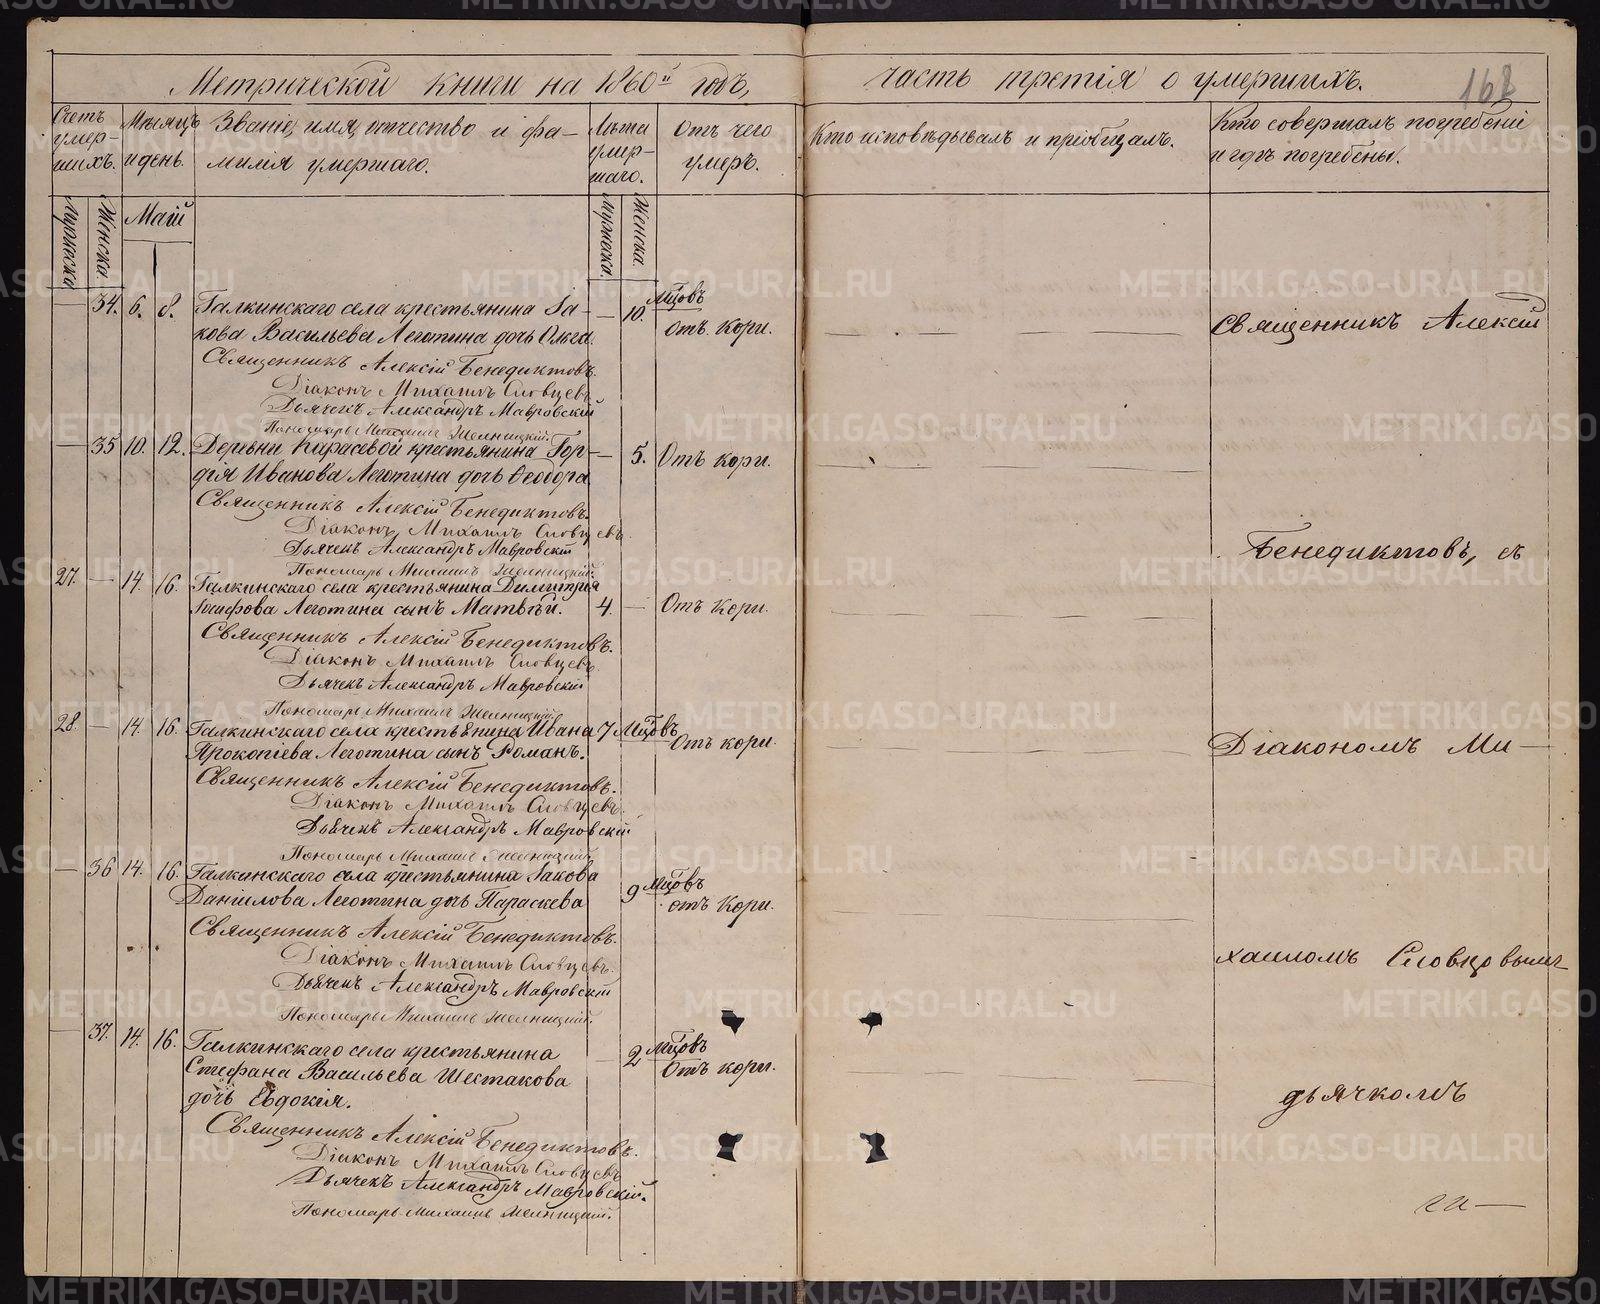 Метрической книги на 1860й годъ,
часть третія о умершихъ.
168
Счетъ умер-
шихъ.
Мѣсяцъ
и день.
Званіе, имя, отчество и фа-
милія умершаго.
Лѣта
умер-
шаго.
Отъ чего
умеръ.
Кто исповѣдывалъ и пріобщалъ.
Кто совершалъ погребеніе
и гдѣ погребены.
Мужеска
Женска.
Маій
Мужеска.
Женска.
— 34. 6. 8. Галкинскаго села крестьянина Іа- — 10. мѣцовъ
кова Васильева Леготина дочь Ольга. отъ кори.
Священникъ Алексій Бенедиктовъ.
Діаконъ Михаилъ Словцевъ
Дьячекъ Александръ Мавровскій
Пономарь Михаилъ
— 35 10. 12. Деревни Карасевой крестьянина Гор- — 5. Отъ кори.
дія Иванова Леготина дочь Ѳеодора
Священникъ Алексій Бенедиктовъ.
Діаконъ Михаилъ Словцевъ.
Дьячекъ Александръ Мавровскій
Пономарь Михаилъ
27. — 14. 16. Галкинскаго села крестьянина Димитрія
Іосифова Леготина сынъ Матвѣй. 4. — Отъ кори.
Священникъ Алексій Бенедиктовъ.
Діаконъ Михаилъ Словцевъ.
Дьячекъ Александръ Мавровскій
Пономарь Михаилъ
28. — 14. 16. Галкинскаго села крестьянина Ивана 7 мѣцовъ
Прокопіева Леготина сынъ Романъ. Отъ кори.
Священникъ Алексій Бенедиктовъ.
Діаконъ Михаилъ Словцевъ.
Дьячекъ Александръ Мавровскій
Пономарь Михаилъ
— 36 14. 16. Галкинскаго села крестьянина Іакова 9 мѣцовъ
Даніилова Леготина дочь Параскева отъ кори.
Священникъ Алексій Бенедиктовъ.
Діаконъ Михаилъ Словцевъ.
Дьячекъ Александръ Мавровскій
Пономарь Михаилъ
— 37. 14. 16. Галкинскаго села крестьянина — 2 мѣцовъ
Стефана Васильева Шестакова Отъ кори.
дочь Евдокія.
Священникъ Алексій Бенедиктовъ.
Діаконъ Михаилъ Словцевъ
Дьячекъ Александръ Мавровскій.
Пономарь Михаилъ
Священникъ Алексій
Бенедиктовъ, съ
Діакономъ Ми-
хаиломъ Словцовымъ
дьячкомъ
METRIKI.GASO-URAL.RU